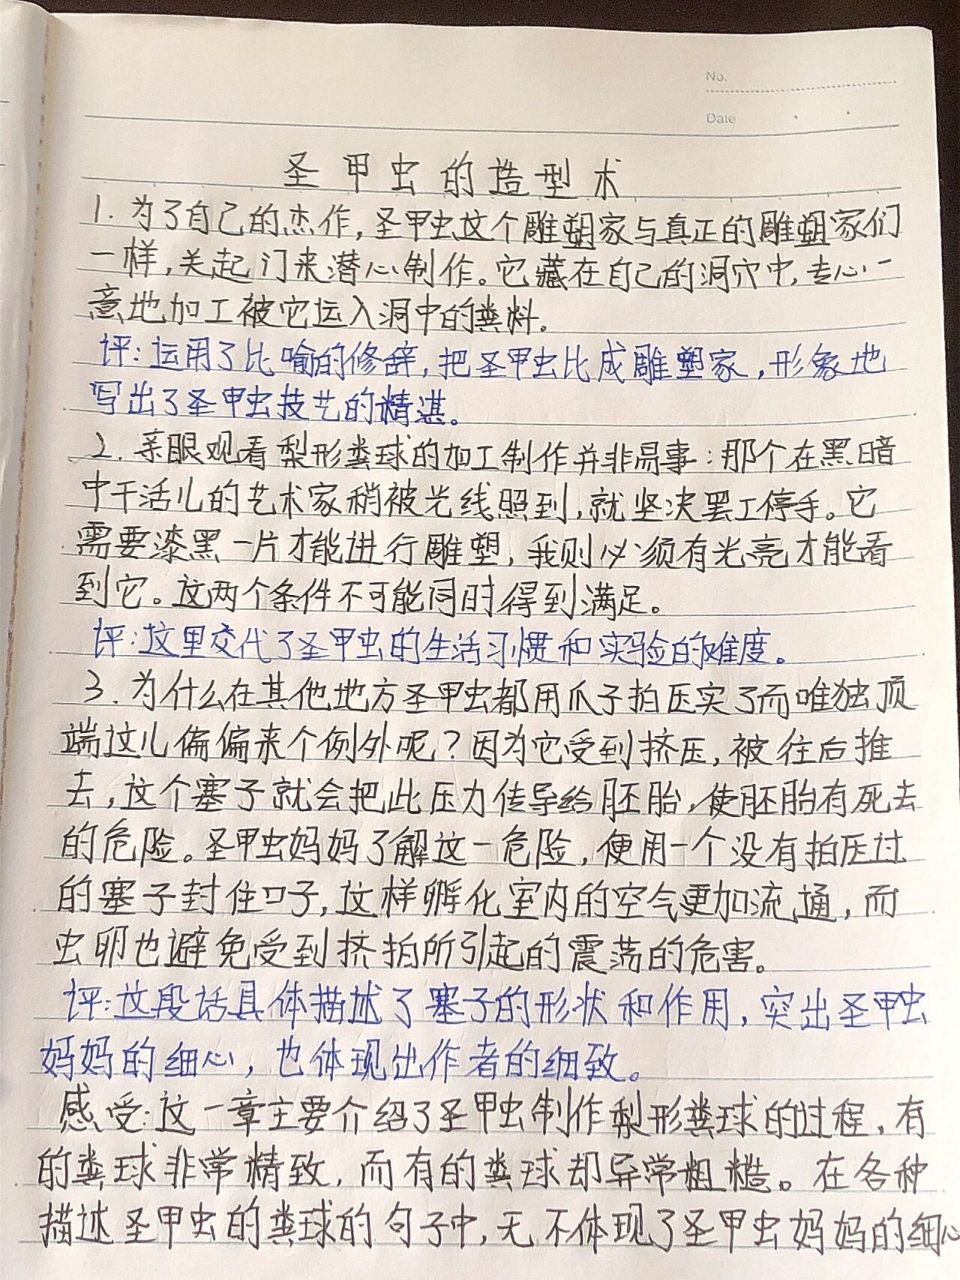 No.
Date
圣甲虫的造型术
1.为了自己的杰作,圣甲虫这个雕塑家与真正的雕塑家们
一样,关起门来潜心制作。它藏在自己的洞穴中,专心一
意地加工被它运入洞中的粪料。
评:运用了比喻的修辞,把圣甲虫比成雕塑家,形象地
写出了圣甲虫技艺的精湛。
2.亲眼观看梨形粪球的加工制作并非易事:那个在黑暗
中干活儿的艺术家稍被光线照到,就坚决罢工停手。它
需要漆黑一片才能进行雕塑,我则必须有光亮才能看
到它。这两个条件不可能同时得到满足。
评:这里交代了圣甲虫的生活习惯和实验的难度。
3.为什么在其他地方圣甲虫都用爪子拍压实了而唯独顶
端这儿偏偏来个例外呢?因为它受到挤压,被往后推
去,这个塞子就会把此压力传导给胚胎,使胚胎有死去
的危险。圣甲虫妈妈了解这一危险,便用一个没有拍压过
的塞子封住口子,这样孵化室内的空气更加流通,而
虫卵也避免受到挤拍所引起的震荡的危害。
评:这段话具体描述了塞子的形状和作用,突出圣甲虫
妈妈的细心,也体现出作者的细致。
感受:这一章主要介绍了圣甲虫制作梨形粪球的过程,有
的粪球非常精致,而有的粪球却异常粗糙。在各种
描述圣甲虫的粪球的句子中,无不体现了圣甲虫妈妈的细心